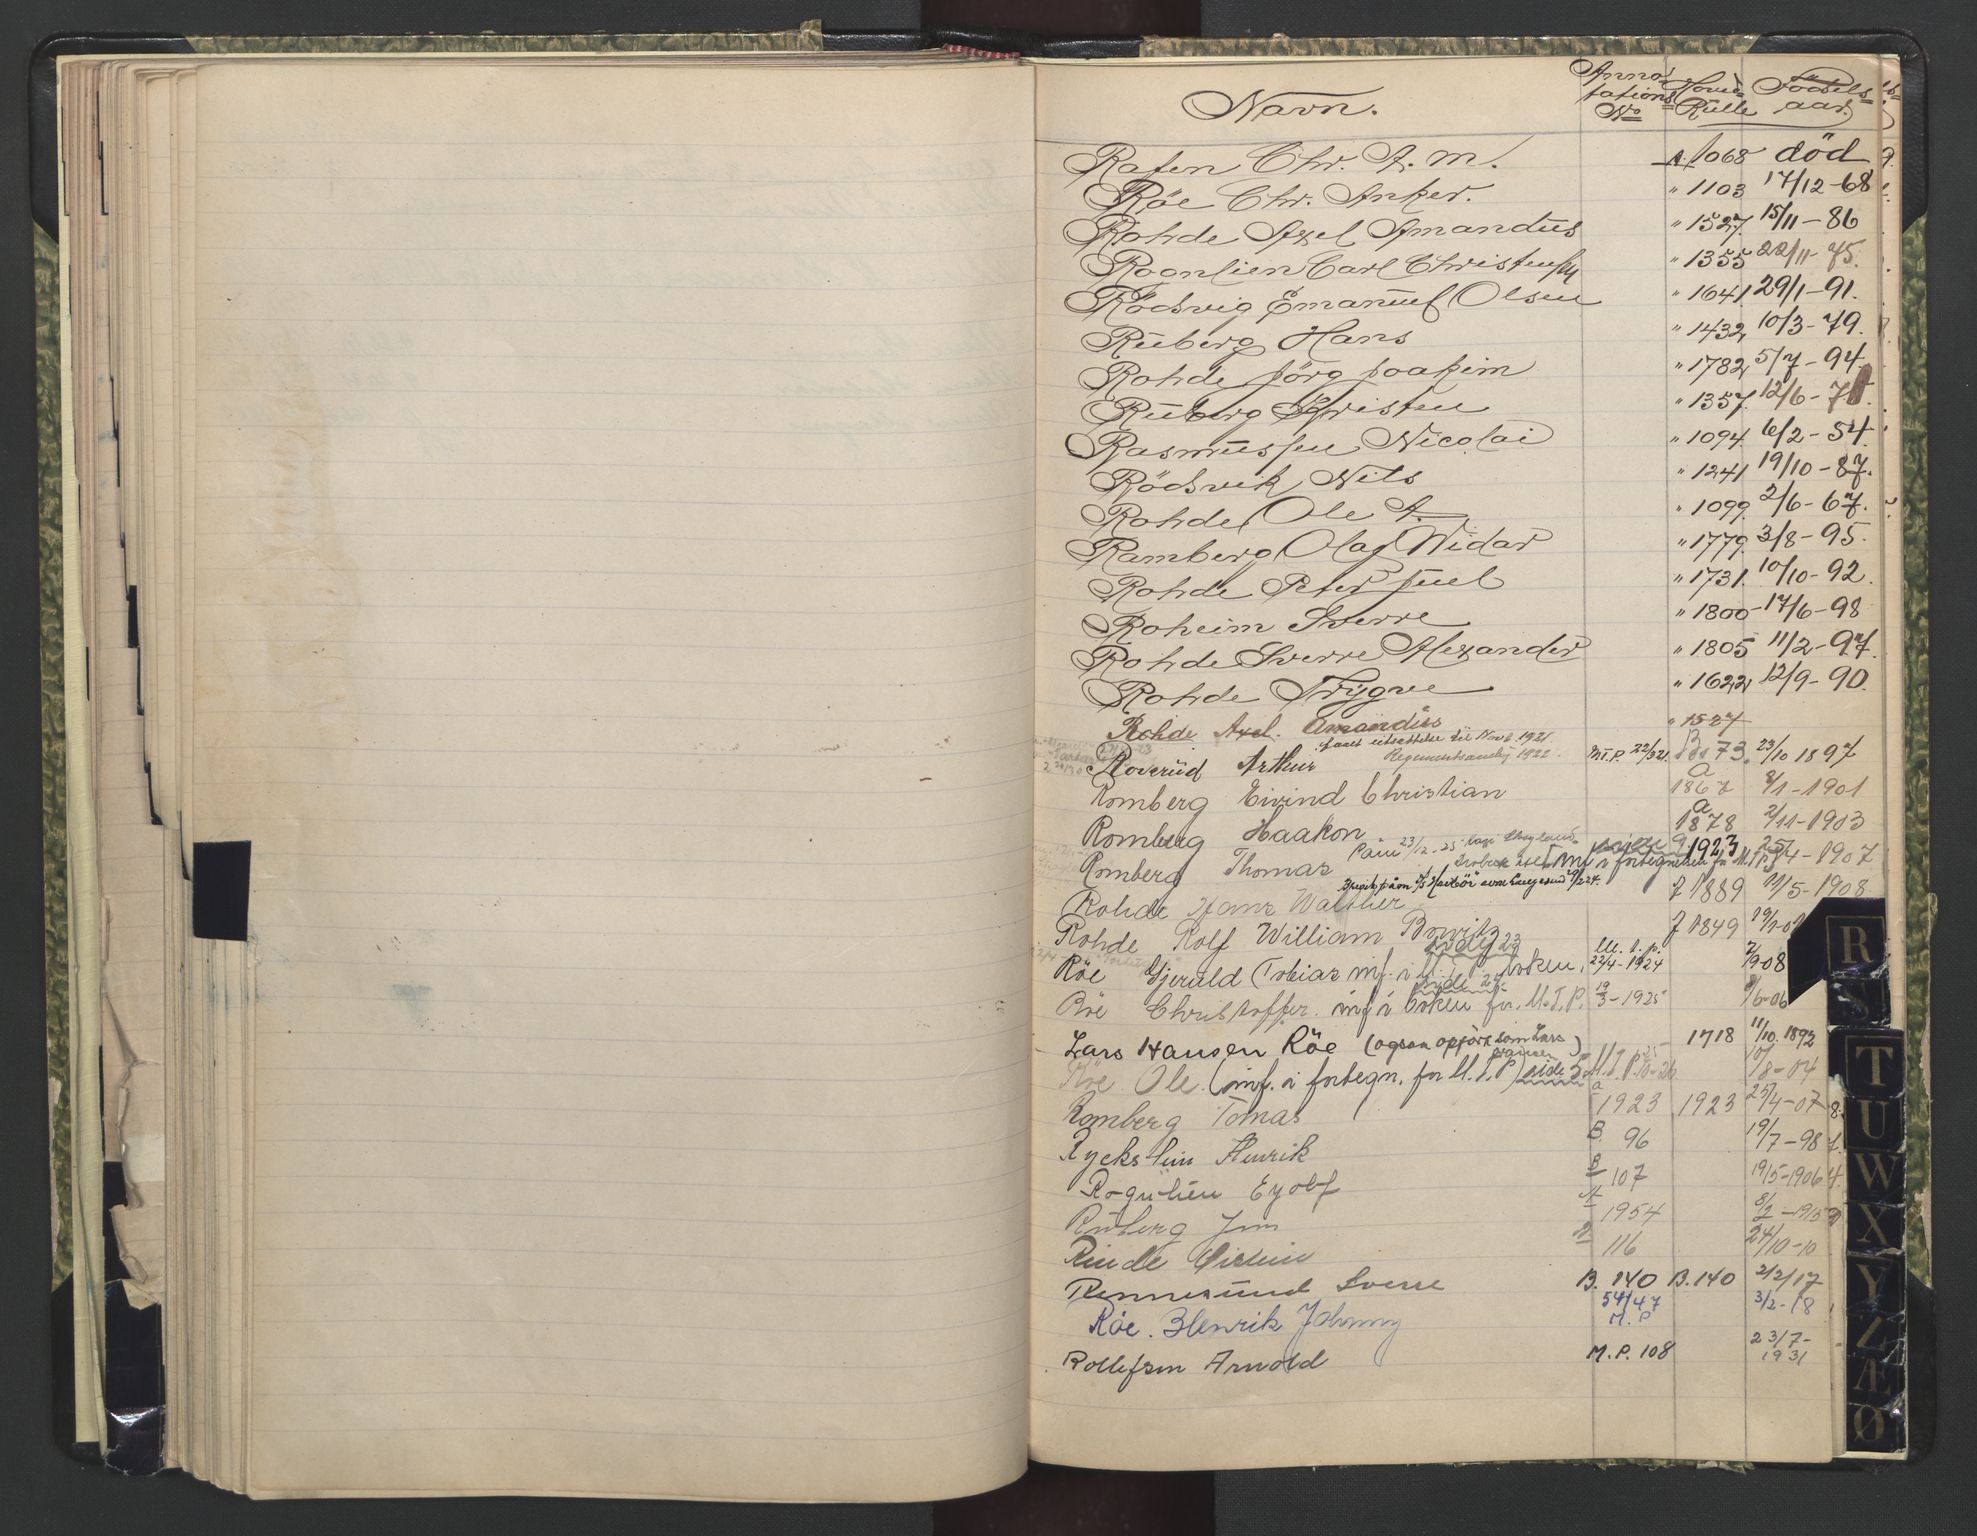 Navn. Anno- tations No Hoved- Rulle Födsels- aar.
Rafen Chr. A. M. A. 1068 död
Röe Chr. Anker. " 1103 17/12-68
Rohde Axel Amandus " 1527 15/11-86
Rognlien Carl Christensen " 1355 22/11-75.
Rödsvig Emanuel Olsen " 1641 29/1-91.
Ruberg Hans " 1432 10/3-79.
Rohde Jörg Joakim " 1782 5/7-94.
Ruberg Kristen " 1357. 12/6-7
Rasmussen Nicolai " 1094. 6/2-54.
Rödsvik Nils " 1241 19/10-87.
Rohde Ole A. " 1099. 2/6-67.
Ramberg Olaf Widar " 1779. 3/8-95.
Rohde Peter Juel " 1731. 10/10-92.
Roheim Sverre " 1800 17/6-98
Rohde Sverre Alexander " 1805 11/2-97.
Rohde Trygve " 1622 12/9-90.
Rohde Axel. Amandus " 1527
faaet utsættelse til Novb. 1921
Roverud Arthur 1922 M.T.P. 22/3 21. B. 73. 23/10 1897
Romberg Eivind Christian a 1867 8/1-1901
Romberg Haakon a 1878 2/11-1903
Romberg Thomas inf i fortegnelsen for M.T.P. 1923 25/4-1907
Rohde Hans Walther J 1889 11/5-1908
Rohde Rolf William J 1849 19/1-01
side 23
Röe Gjeruld Tobias inf. i M.T.P. boken, M.T.P. 22/4-1924 7/9-08
Röe Christoffer. inf i boken for M.T.P. 19/3-1925 /6-06
Lars Hansen Röe (ogsaa opført som Lars Hansen) 1718 11/10 1892
Röe Ole. (inf. i fortegn. for M.T.P) side M.T.P. 10/8-04
Romberg Tomas a 1923 1923 25/4-07
Ryckstein Henrik B. 96 19/7-98
Rognlien Eyolf B 107 19/5-1906
Ruberg Jens A 1954 8/2-1915
Rinde Øistein B 116 24/10-10
Rennesund Sverre B. 140 B. 140 2/2/17
Röe. Henrik Johnny 54/47 M.P 3/2-18
Rollefsen Arnold M.P. 108 23/7-1931
R
S
T
U
W
X
Y
Z
Æ
Ø